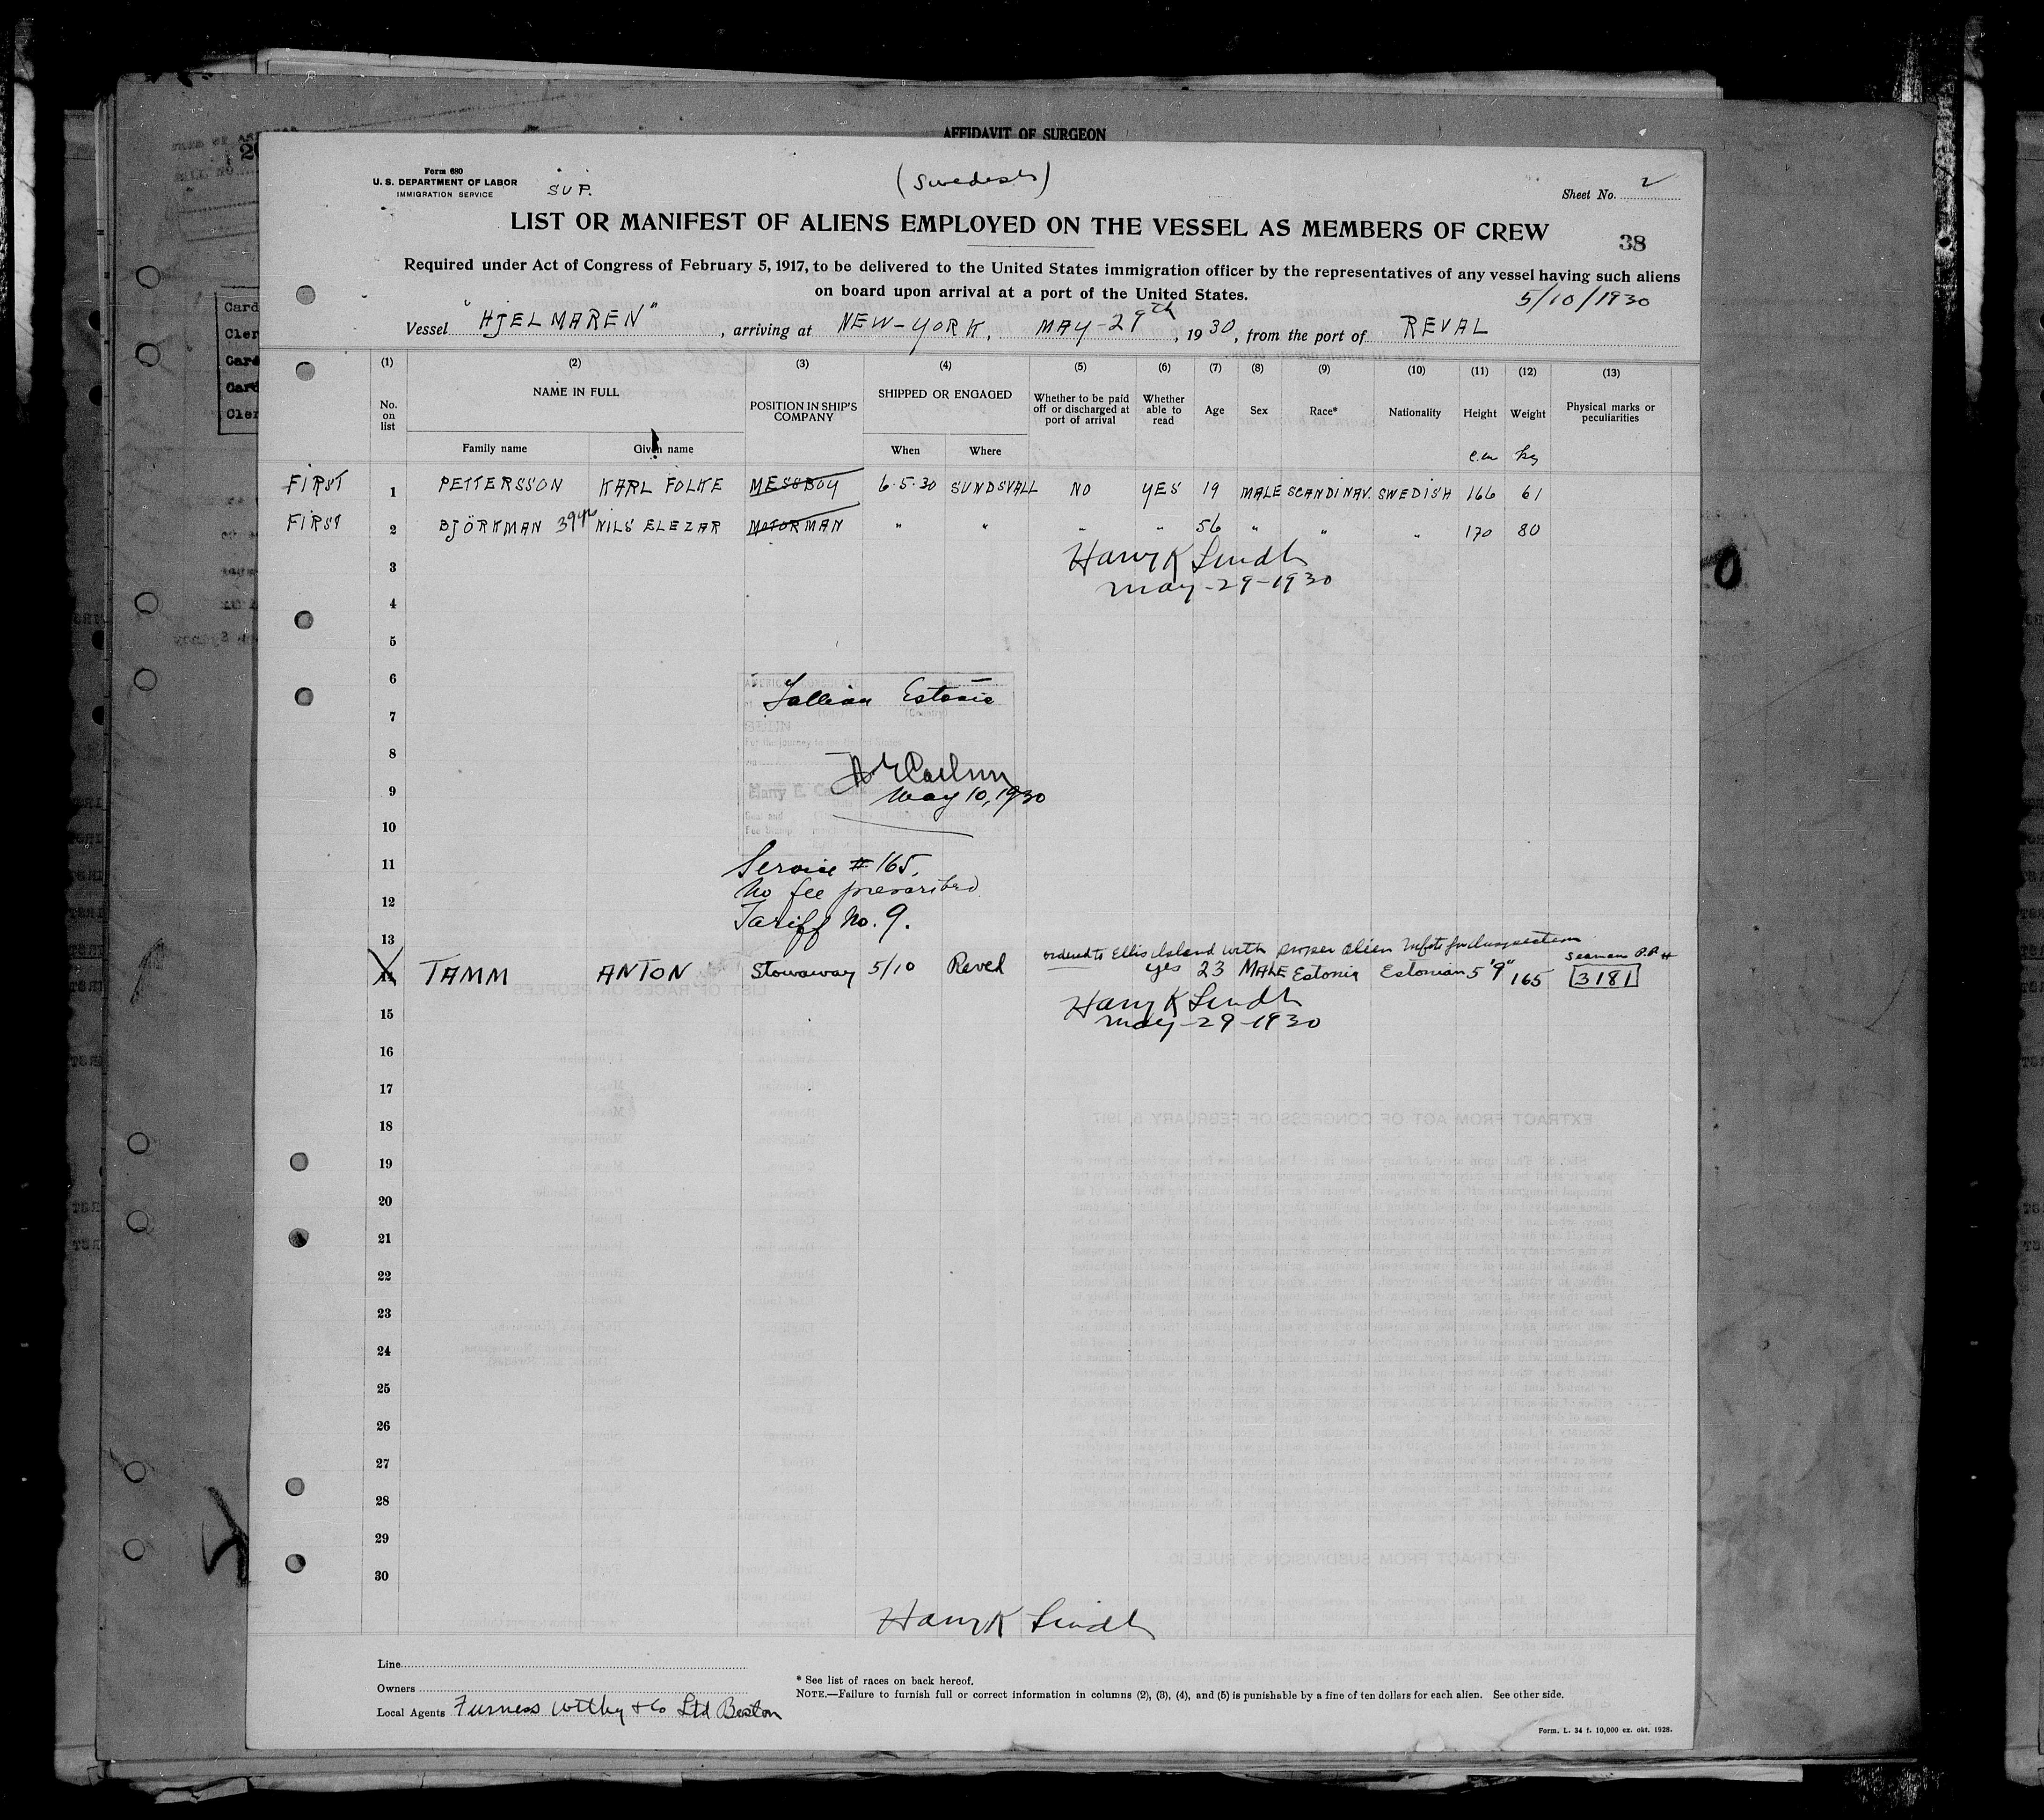 AFFIDAVIT OF SURGEON
Form 680
U. S. DEPARTMENT OF LABOR
IMMIGRATION SERVICE
SUP.
(Swedish)
Sheet No. 2
LIST OR MANIFEST OF ALIENS EMPLOYED ON THE VESSEL AS MEMBERS OF CREW
38
Required under Act of Congress of February 5, 1917, to be delivered to the United States immigration officer by the representatives of any vessel having such aliens
on board upon arrival at a port of the United States.
5/10/1930
Vessel "HJELMAREN", arriving at NEW-YORK, MAY-29th, 1930, from the port of REVAL
(1) (2) (3) (4) (5) (6) (7) (8) (9) (10) (11) (12) (13)
No. on list NAME IN FULL POSITION IN SHIP'S COMPANY SHIPPED OR ENGAGED Whether to be paid off or discharged at port of arrival Whether able to read Age Sex Race* Nationality Height Weight Physical marks or peculiarities
Family name Given name When Where
cm kg
FIRST 1 PETTERSSON KARL FOLKE MESSBOY 6.5.30 SUNDSVALL NO YES 19 MALE SCANDINAV. SWEDISH 166 61
FIRST 2 BJÖRKMAN NILS ELEZAR MOTORMAN " " " " 56 " " " 170 80
3 Harry K Lindh
May-29-1930
4
5
6
Tallinn Estonia
7
8
May 10, 1930
9
10
11 Service #165.
No fee prescribed
12
Tariff No. 9.
13
ordered to Ellis Island with proper alien
Seamans P.P. #
14 TAMM ANTON Stowaway 5/10 Revel yes 23 MALE Estonia Estonian 5'9" 165 3181
15 Harry K Lindh
May-29-1930
16
17
18
19
20
21
22
23
24
25
26
27
28
29
30
Harry K Lindh
Line
Owners
Local Agents Furness Withy & Co Ltd Boston
* See list of races on back hereof.
NOTE.—Failure to furnish full or correct information in columns (2), (3), (4), and (5) is punishable by a fine of ten dollars for each alien. See other side.
Form. L. 34 f. 10,000 ex. okt. 1928.